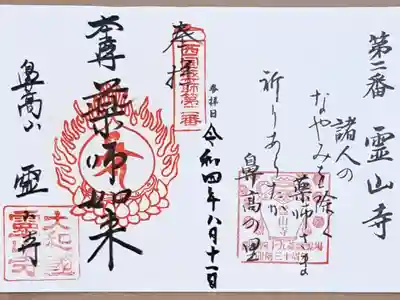 第二番 霊山寺
諸人の
なやみを除く
薬師さま
祈りあらたか
鼻高の里
参拝日 令和四年八月十一日
奉拝
西国薬師第二番
本尊 薬師如来
鼻高山 霊山寺